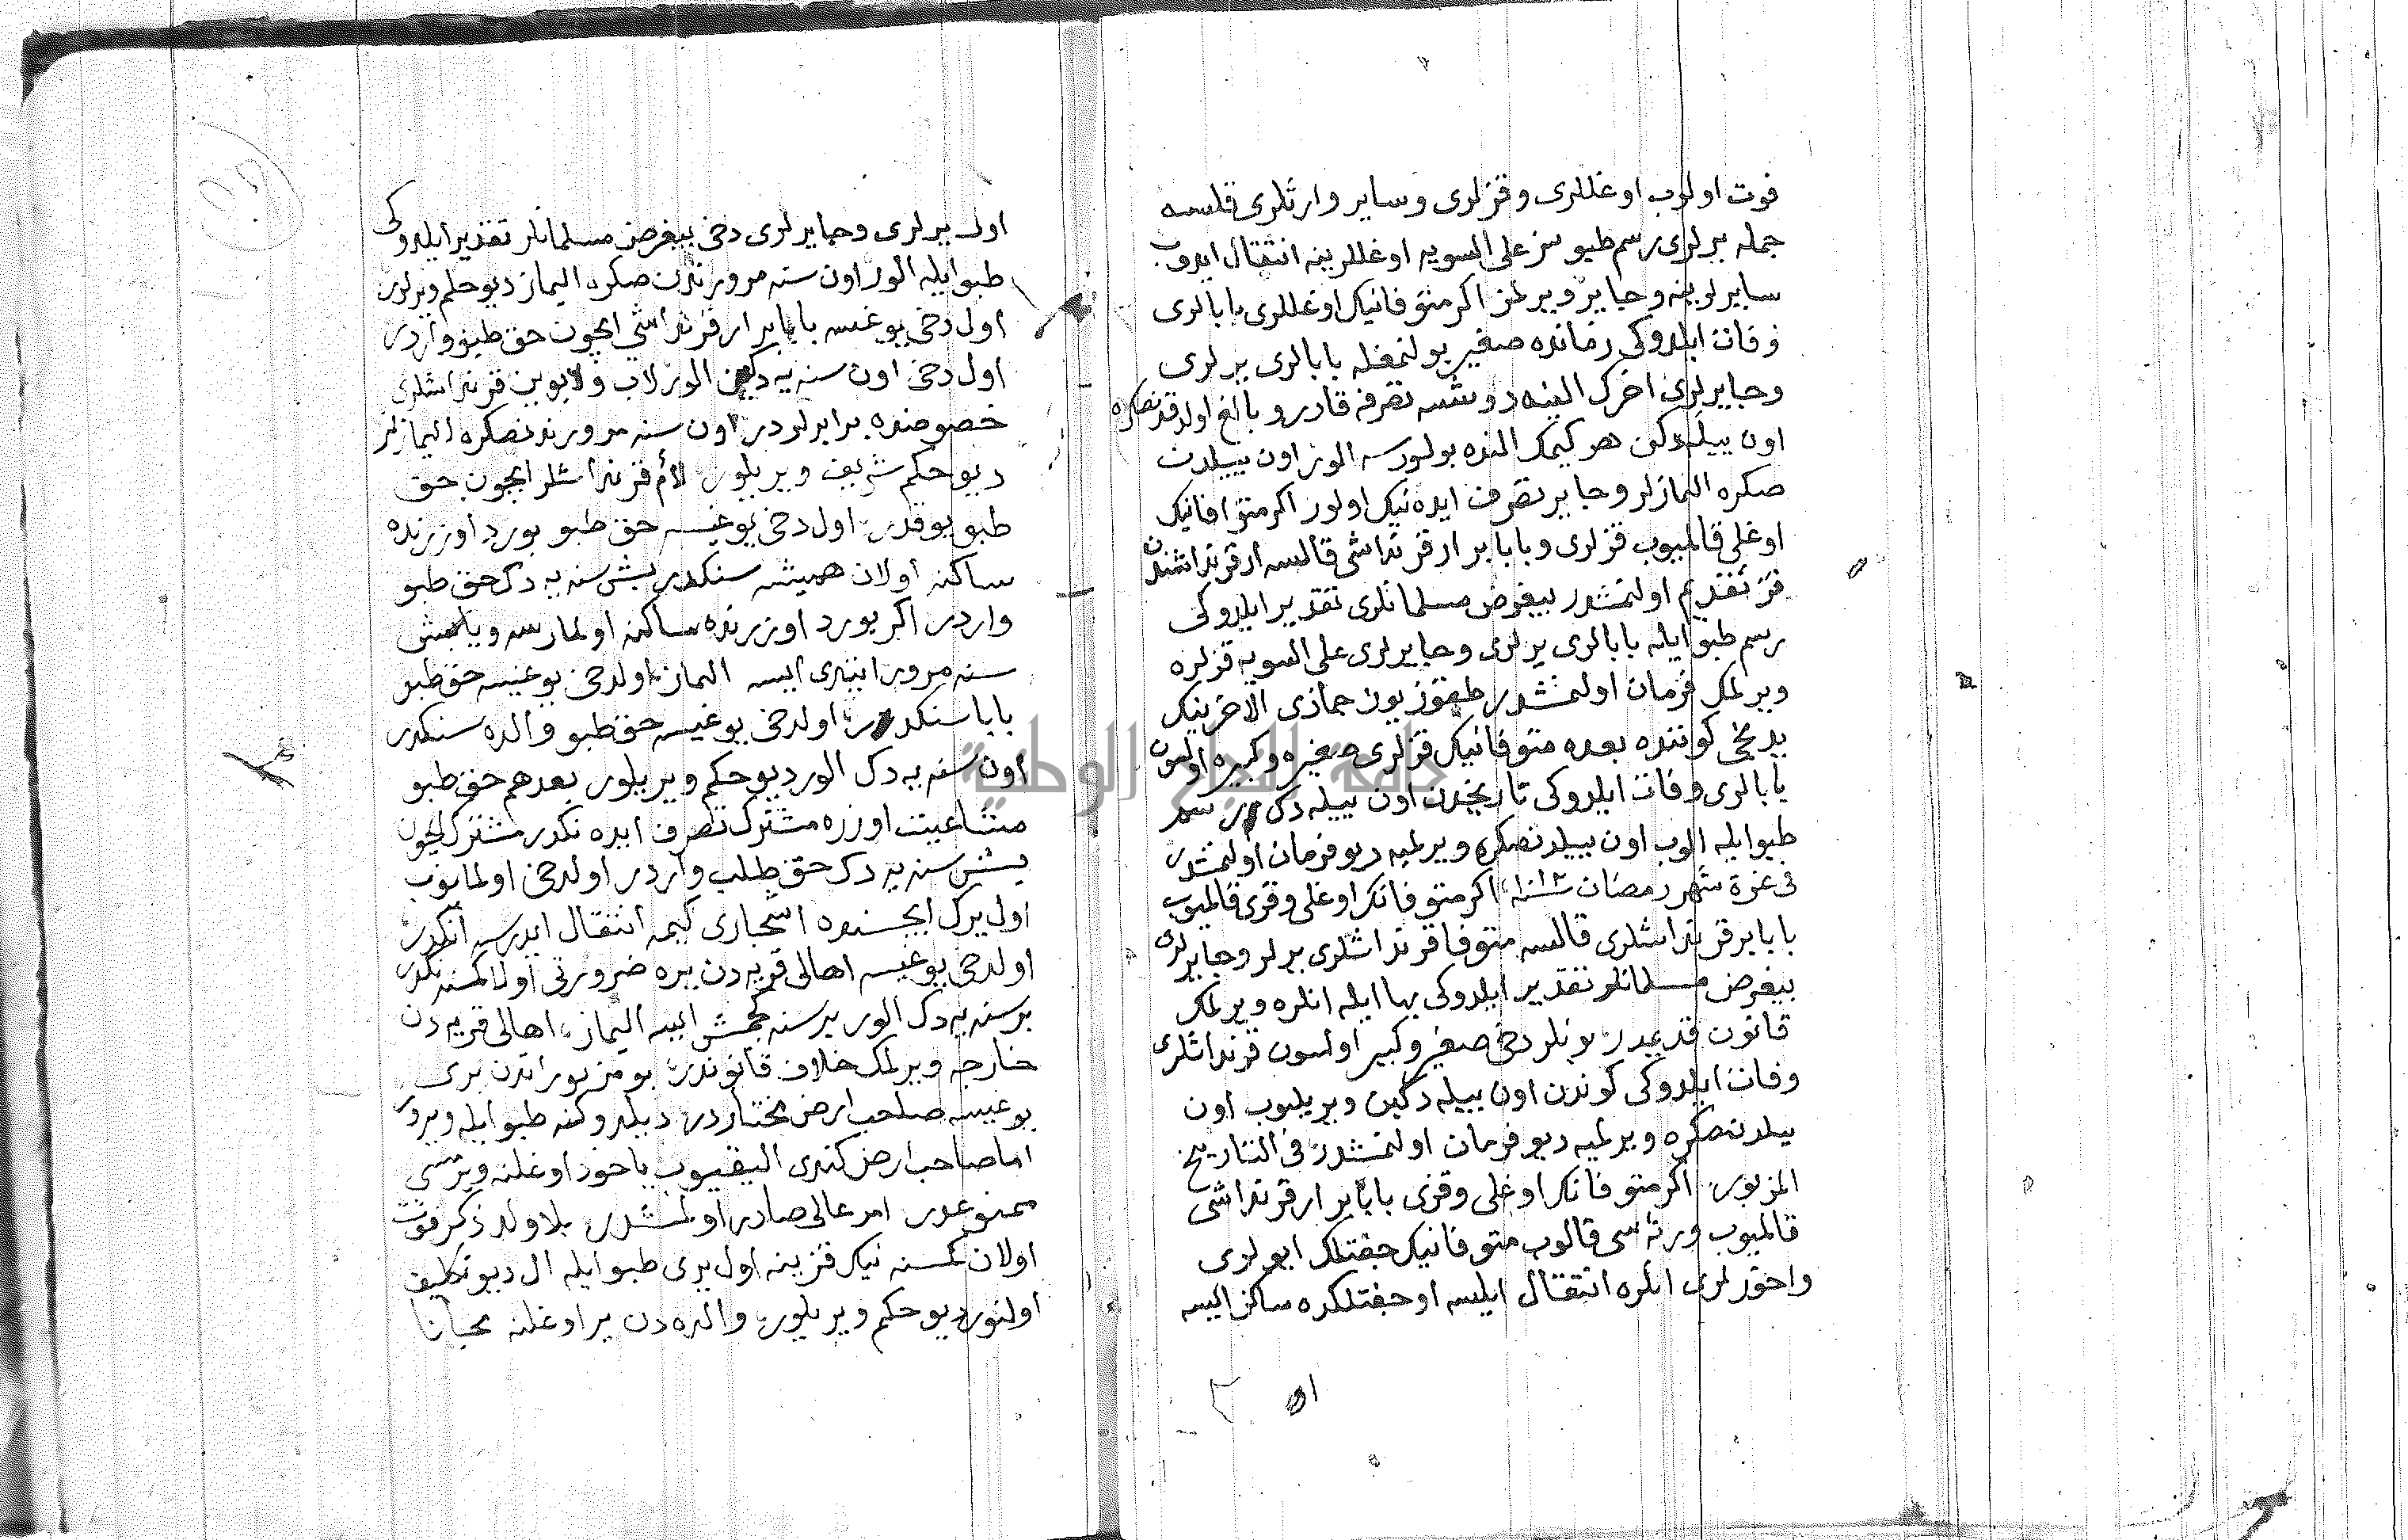 فوت اولوب اوغللرى وقزلرى وساير وارثلرى قلسه
جمله يرلرى رسم طپوسز على السويه اوغللرينه انتقال ايدوب
سايرلرينه وجاير ويرلمز اكر متوفانيك اوغللرى بابالرى
وفات ايلدوكى زمانده صغير بولنمغله بابالرى يرلرى
وجايرلرى اخرك الينه دوشسه تصرفه قادر و بالغ اولدقدنصكره
اون ييله دكن هر كيمك النده بولورسه الور اون ييلدن
صكره المازلر وجاير تصرف ايده نيك اولور اكر متوفانيك
اوغلى قالميوب قزلرى و بابا بر ار قرنداشى قالسه ار قرنداشندن
قز تقديم اولنمشدر بيغرض مسلمانلرى تقدير ايلدوكى
رسم طپو ايله بابالرى يرلرى وجايرلرى على السويه قزلره
ويرلمك فرمان اولنمشدر طقوز يوز جمازى الاخرنيك
يدنجى كوننده بعده متوفانيك قزلرى صغيره وكبيره اولسون
بابالرى وفات ايلدوكى تاريخدن اون ييله دك رسم
طپو ايله الوب اون ييلدنصكره ويرلميه ديو فرمان اولنمشدر
فى غرة شهر رمضان سنة ١٠١٢ اكر متوفانك اوغلى وقزى قالميوب
بابا بر قرنداشلرى قالسه متوفا قرنداشلرى يرلر وجايرلرى
بيغرض مسلمانلر تقدير ايلدوكى بها ايله انلره ويرلمك
قانون قديمدر بونلر دخى صغير وكبير اولسون قرنداشلرى
وفات ايلدوكى كوندن اون ييله دكين ويريلوب اون
ييلدنصكره ويرلميه ديو فرمان اولنمشدر فى التاريخ
المزبور اكر متوفانك اوغلى وقزى بابا بر ار قرنداشى
قالميوب ورثه سى قالوب متوفانيك جفتلك ايولرى
واخورلرى انلره انتقال ايلسه او جفتلكده ساكن ايسه
اول يرلرى وجايرلرى دخى بيغرض مسلمانلر تقدير ايلدوكى
طپو ايله الور اون سنه مرورندن صكره اليماز ديو حكم ويرلور
اول دخى يوغيسه بابا بر ار قرنداشى ايچون حق طپو واردر
اول دخى اون سنه يه دكين الور لاب ولابوين قرنداشلرى
خصوصنده برابرلردر اون سنه مرورندنصكره اليمازلر
ديو حكم شريف ويريلور لأم قرنداشلر ايچون حق
طپو يوقدر اول دخى يوغيسه حق طپو يورد اوزرنده
ساكنه اولان همشيره سنكدر بش سنه يه دك حق طپو
واردر اكر يورد اوزرنده ساكنه اولمازسه ويا بش
سنه مرور ايتدى ايسه الماز اولدخى يوغيسه حق طپو
باباسنكدر اولدخى يوغيسه حق طپو والده سنكدر
اون سنه يه دك الور ديو حكم ويريلور بعدهم حق طپو
مشاعيت اوزره مشترك تصرف ايده نكدر مشترك ايچون
بش سنه يه دك حق طلب واردر اولدخى اولمايوب
اول يرك ايچنده اشجارى كيمه انتقال ايدرسه انكدر
اولدخى يوغيسه اهالى قريه دن يره ضرورتى اولان كمسنه نكدر
بر سنه يه دك الور بر سنه كچمش ايسه اليماز اهالى قريه دن
خارجه ويرلمك خلاف قانوندر بو مزبوراتدن برى
يوغيسه صاحب ارض مختاردر ديلدوكنه طپو ايله ويرور
اما صاحب ارض كندى اليقيوب ياخود اوغلنه ويرمسى
ممنوعدر امر عالى صادر اولمشدر بلا ولد ذكر فوت
اولان كمسنه نيك قزينه اول يرى طپو ايله ال ديو تكليف
اولنور ديو حكم ويريلور والده دن ير اوغلنه مجانا